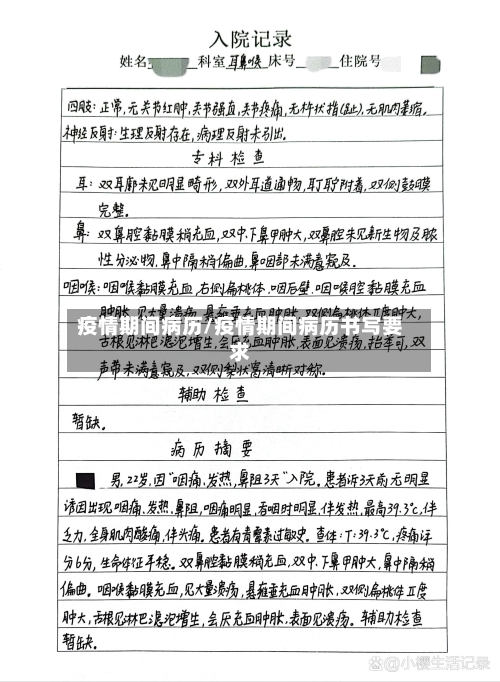 入院记录
姓名 科室 耳鼻喉 床号 住院号
四肢：正常，无关节红肿，关节强直，关节疼痛，无杵状指(趾)，无肌肉萎缩。
神经反射：生理反射存在，病理反射未引出。
专科检查
耳：双耳廓未见明显畸形，双外耳道通畅，耵聍附着，双侧鼓膜
完整。
鼻：双鼻腔黏膜稍充血，双中、下鼻甲肿大，双鼻腔未见新生物及脓
性分泌物，鼻中隔稍偏曲，鼻咽部未满意窥及。
咽喉：咽喉黏膜充血，右侧扁桃体、咽后壁、咽喉腔黏膜充血
肿胀，见大量溃疡，悬雍垂充血肿胀，双侧扁桃体Ⅱ度肿大，
疫情期间病历/疫情期间病历书写要
求
舌根见淋巴滤泡增生，会厌充血肿胀，表面见溃疡，抬举可，双
声带未满意窥及，双侧梨状窝清晰对称。
辅助检查
暂缺。
病历摘要
男，22岁，因“咽痛、发热，鼻阻3天”入院。患者诉3天前无明显
诱因出现咽痛、发热、鼻阻，咽痛明显，吞咽时明显，伴发热，最高39.3℃，伴
乏力，全身肌肉酸痛，伴头痛。患者有青霉素过敏史。查体：T：39.3℃，疼痛评
分6分，生命体征平稳。双鼻腔黏膜稍充血，双中、下鼻甲肿大，鼻中隔稍
偏曲。咽喉黏膜充血，见大量溃疡，悬雍垂充血肿胀，双侧扁桃体Ⅱ度
肿大，舌根见淋巴滤泡增生，会厌充血肿胀，表面见溃疡。辅助检查
暂缺。
@小樱生活记录